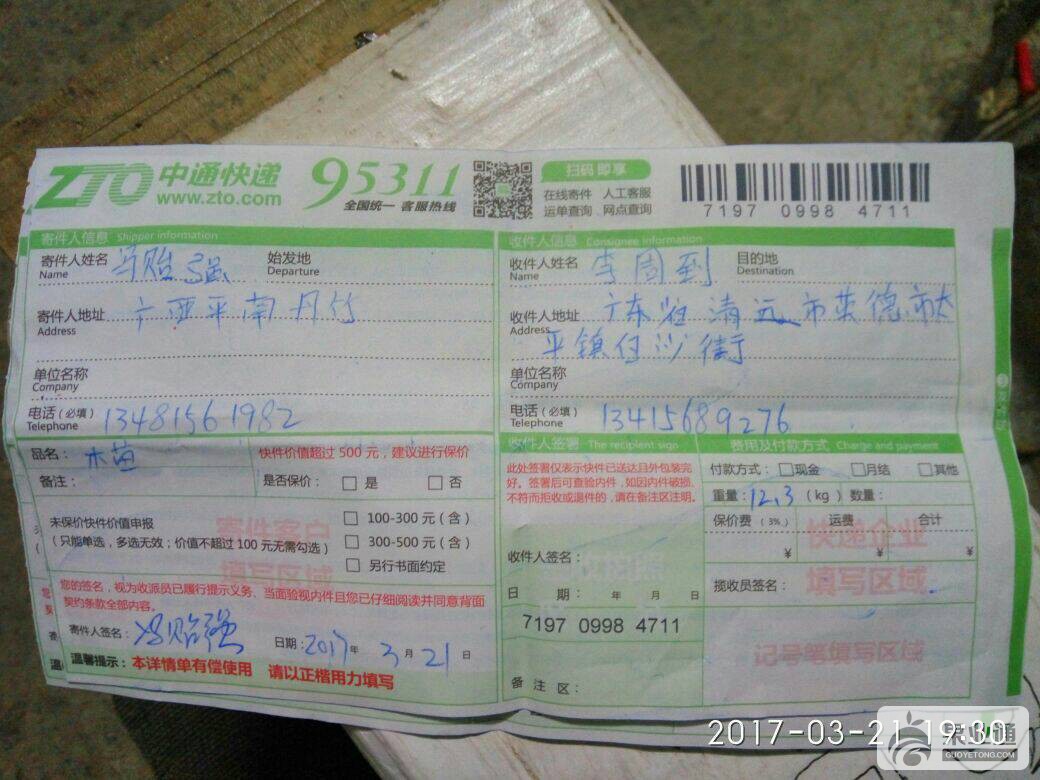 ZTO 中通快递 95311
www.zto.com 全国统一 客服热线
扫码 即享
在线寄件 人工客服
运单查询 网点查询
7197 0998 4711
寄件人信息 Shipper information
寄件人姓名 冯贻强 始发地
Name Departure
寄件人地址 广西平南丹竹
Address
单位名称
Company
电话(必填) 13481561982
Telephone
收件人信息 Consignee information
收件人姓名 李周到 目的地
Name Destination
收件人地址 广东省清远市英德市大
Address 平镇白沙街
单位名称
Company
电话(必填) 13415689276
Telephone
品名: 木苗 快件价值超过 500 元,建议进行保价
备注: 是否保价: 是 否
未保价快件价值申报
(只能单选,多选无效;价值不超过 100 元无需勾选)
100-300 元(含)
300-500 元(含)
另行书面约定
寄件客户
填写区域
您的签名,视为收派员已履行提示义务、当面验视内件且您已仔细阅读并同意背面
契约条款全部内容。
寄件人签名: 冯贻强 日期: 2017 年 3 月 21 日
温馨提示:本详情单有偿使用 请以正楷用力填写
收件人签署 The recipient sign
此处签署仅表示快件已送达且外包装完
好。签署后可查验内件,如因内件破损、
不符而拒收或退件的,请在备注区注明。
收件人签名:
日 期: 年 月 日
7197 0998 4711
备注区:
费用及付款方式 Charge and payment
付款方式: 现金 月结 其他
重量: 12.3 (kg) 数量:
保价费(3%) 运费 合计
¥ ¥ ¥
快递企业
揽收员签名: 填写区域
记号笔填写区域
2017-03-21 19:30
果业通
GUOYETONG.COM